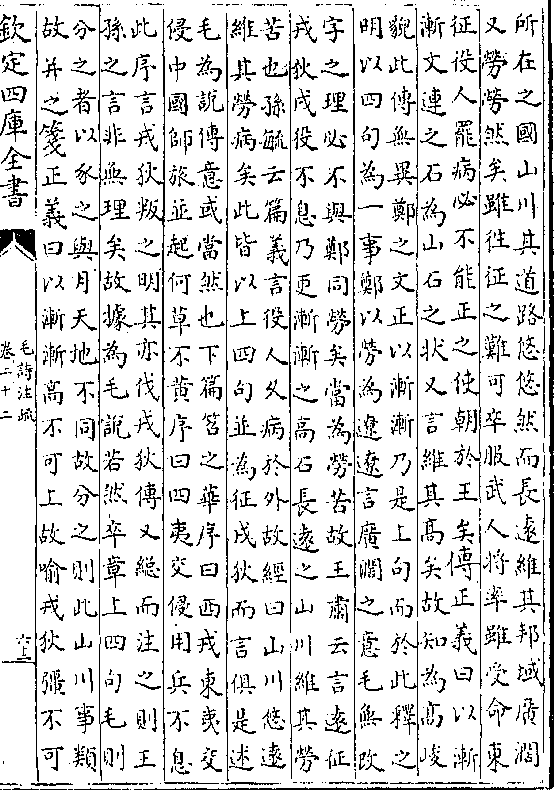 所在之國山川其道路悠悠然而長遠維其邦域廣濶
又勞勞然矣雖往征之難可卒服武人將率雖受命東
征役人罷病必不能正之使朝於王矣傳正義曰以漸
漸文連之石為山石之狀又言維其髙矣故知為髙峻
貌此傳無異鄭之文正以漸漸乃是上句而於此釋之
明以四句為一事鄭以勞為遼遼言廣濶之意毛無改
字之理必不與鄭同勞矣當為勞苦故王肅云言遠征
戎狄戍役不息乃更漸漸之高石長遠之山川維其勞
苦也孫毓云篇義言役人乆病於外故經曰山川悠遠
維其勞病矣此皆以上四句並為征戍狄而言俱是述
毛為說傳意或當然也下篇苕之華序曰西戎東夷交
侵中國師旅並起何草不黄序曰四夷交侵用兵不息
此序言戎狄叛之明其亦伐戎狄傳又緫而注之則王
孫之言非無理矣故據為毛說若然卒章上四句毛則
分之者以豕之與月天地不同故分之則此山川事類
故并之箋正義曰以漸漸高不可上故喻戎狄彊不可
欽定四庫全書
毛詩注疏
卷二十二
六十二